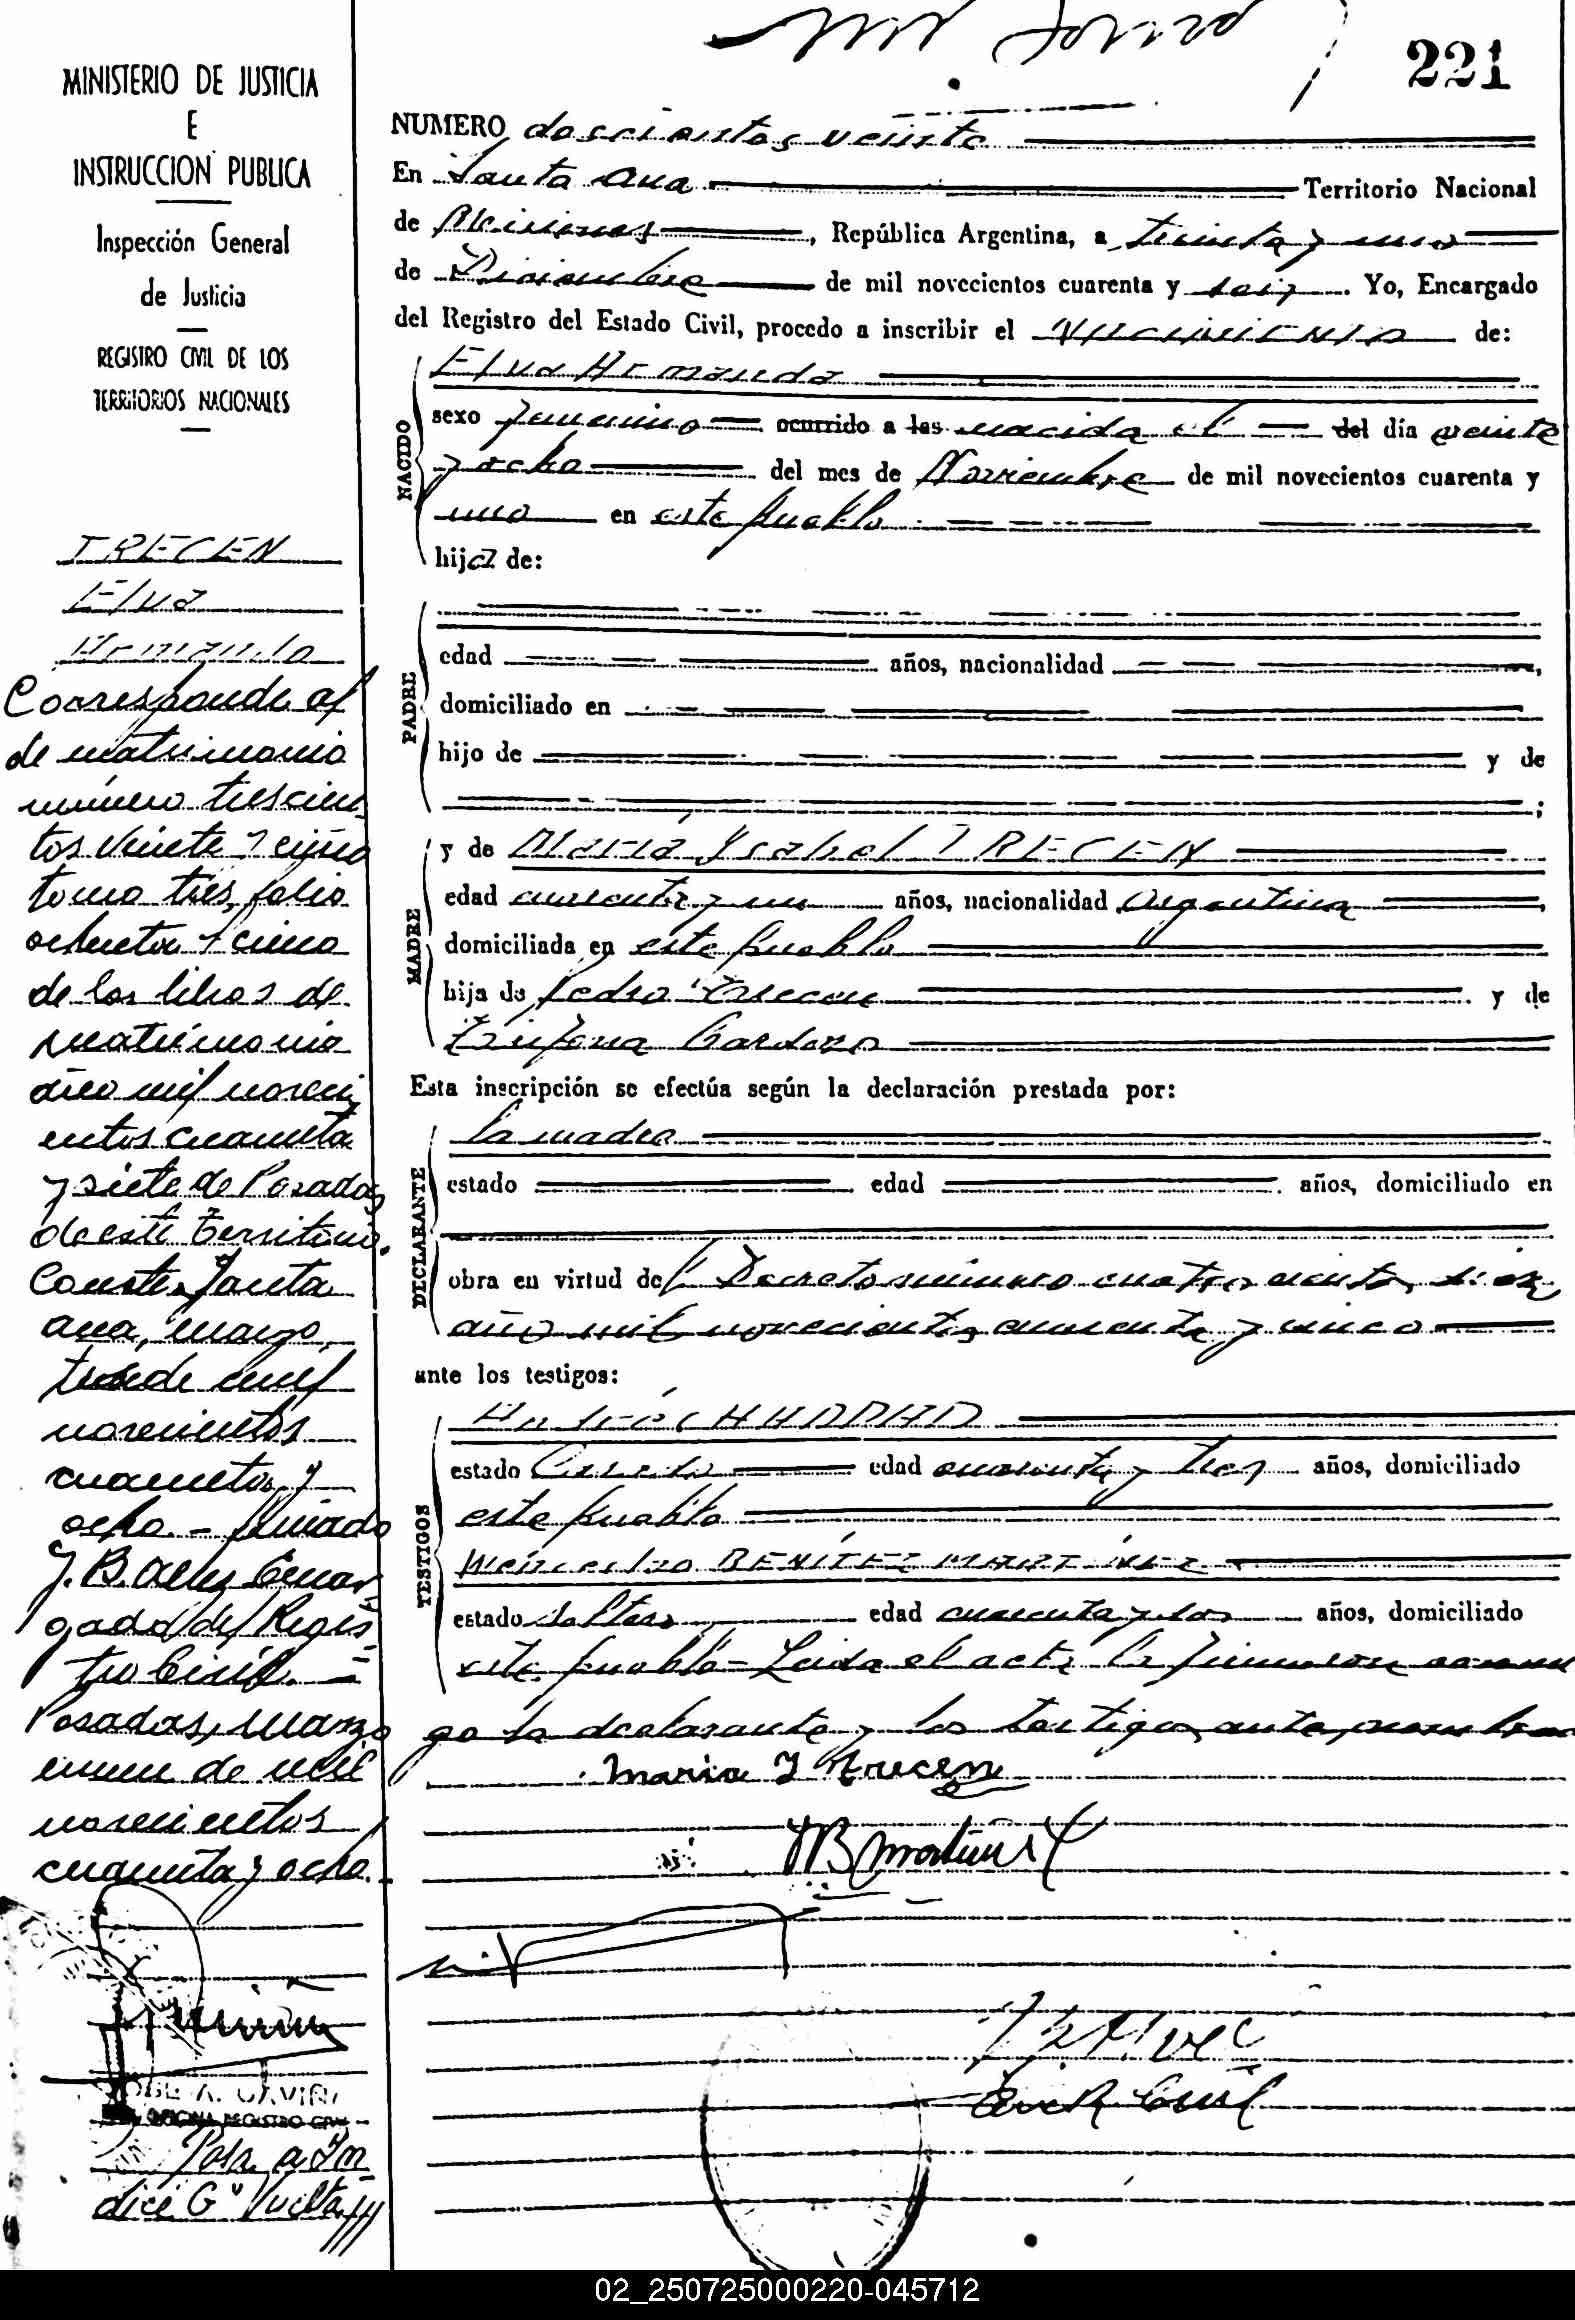 221
MINISTERIO DE JUSTICIA
E
INSTRUCCION PUBLICA
Inspección General
de Justicia
REGISTRO CIVIL DE LOS
TERRITORIOS NACIONALES
TRECEN
Elva
Armanda
Corresponde al
de matrimonio
número trescien
tos veinte y cinco
tomo tres, folio
ochenta y cinco
de los libros de
matrimonio
año mil noveci
entos cuarenta
y siete de Posadas
de este Territorio.
Conste. Santa
Ana, marzo
de mil
novecientos
cuarenta y
ocho. - Firmado
J. B. Encar
gado del Regis
tro Civil. =
Posadas, marzo
de mil
novecientos
cuarenta y ocho.
JOSE A. GAVIÑA
OFICINA REGISTRO CIVIL
Pasa a In
dice Gº Vuelta ///
NUMERO doscientos veinte
En Santa Ana Territorio Nacional
de Misiones, República Argentina, a treinta y uno
de Diciembre de mil novecientos cuarenta y seis. Yo, Encargado
del Registro del Estado Civil, procedo a inscribir el NACIMIENTO de:
NACIDO
Elva Armanda
sexo femenino ocurrido a las nacida el del día veinte
y ocho del mes de Noviembre de mil novecientos cuarenta y
uno en este pueblo
hija de:
PADRE
edad años, nacionalidad ,
domiciliado en
hijo de y de
;
MADRE
y de María Ysabel TRECEN
edad cuarenta y un años, nacionalidad Argentina,
domiciliada en este pueblo
hija de Pedro Trecen y de
Trifona Cardozo
Esta inscripción se efectúa según la declaración prestada por:
DECLARANTE
la madre
estado edad años, domiciliado en
obra en virtud del Decreto número cuatro cientos diez
año mil novecientos cuarenta y cinco
ante los testigos:
TESTIGOS
Andrés CHADDAD
estado Casado edad cuarenta y tres años, domiciliado
este pueblo
Wenceslao BENÍTEZ MARTÍNEZ
estado soltero edad cuarenta y dos años, domiciliado
este pueblo - Leida el acta la firmaron conmi
go la declarante y los testigos
Maria Y Trecen